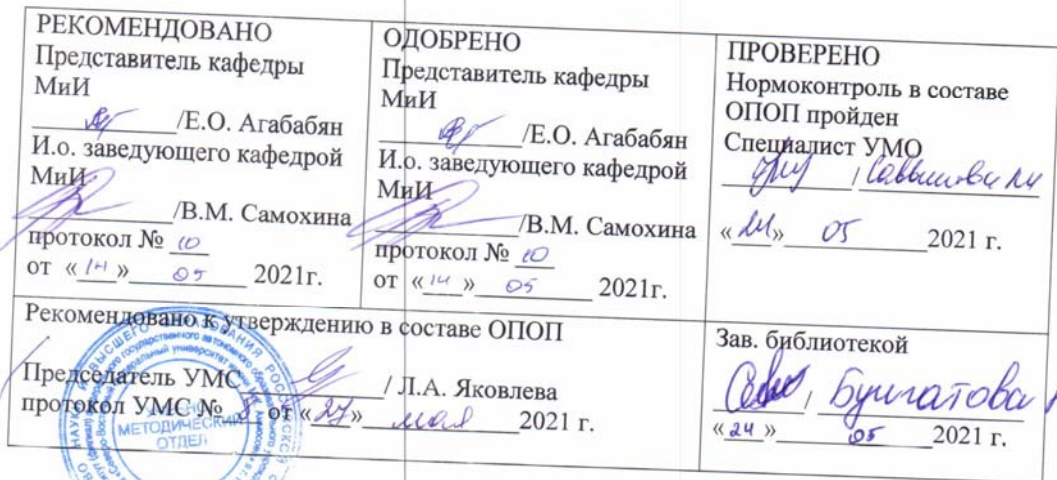 РЕКОМЕНДОВАНО
Представитель кафедры
МиИ
/Е.О. Агабабян
И.о. заведующего кафедрой
МиИ
/В.М. Самохина
протокол № 10
от «14» 05 2021г.
ОДОБРЕНО
Представитель кафедры
МиИ
/Е.О. Агабабян
И.о. заведующего кафедрой
МиИ
/В.М. Самохина
протокол № 10
от «14» 05 2021г.
ПРОВЕРЕНО
Нормоконтроль в составе
ОПОП пройден
Специалист УМО
/
« » 05 2021 г.
Рекомендовано к утверждению в составе ОПОП
Председатель УМС / Л.А. Яковлева
протокол УМС № 8 от «27» мая 2021 г.
МЕТОДИЧЕСКИЙ
ОТДЕЛ
Зав. библиотекой
/
«24» 05 2021 г.